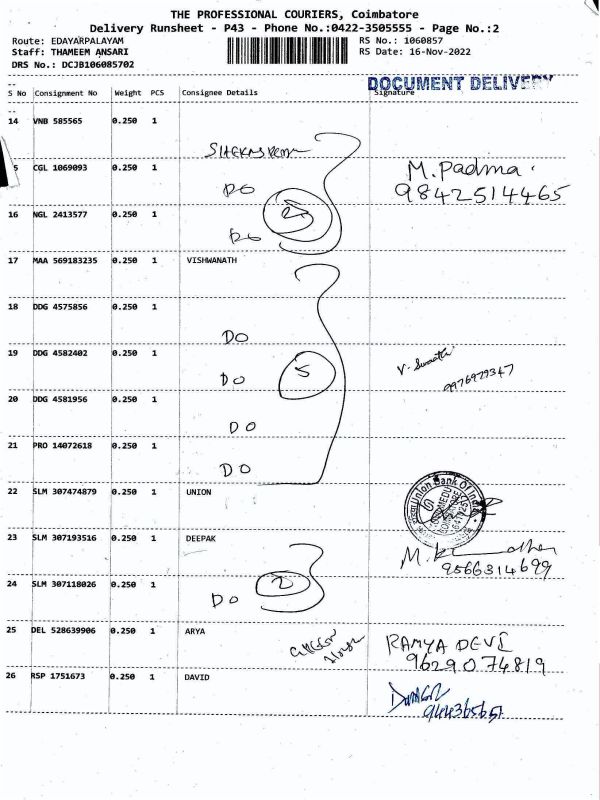 THE PROFESSIONAL COURIERS, Coimbatore
Delivery Runsheet - P43 - Phone No.:0422-3505555 - Page No.:2
Route: EDAYARPALAYAM RS No.: 1060857
Staff: THAMEEM ANSARI RS Date: 16-Nov-2022
DRS No.: DCJB106085702
DOCUMENT DELIVERY
S No Consignment No Weight PCS Consignee Details Signature
14 VNB 585565 0.250 1
5 CGL 1069093 0.250 1 M. Padma.
DO 9842514465
16 NGL 2413577 0.250 1
DO
17 MAA 569183235 0.250 1 VISHWANATH
18 DDG 4575856 0.250 1
DO
19 DDG 4582402 0.250 1
DO 5 9976979347
20 DDG 4581956 0.250 1
DO
21 PRO 14072618 0.250 1
DO
22 SLM 307474879 0.250 1 UNION
Union Bank Of India
23 SLM 307193516 0.250 1 DEEPAK
9566314699
24 SLM 307118026 0.250 1
DO 2
25 DEL 528639906 0.250 1 ARYA RAMYA DEVI
9629074819
26 RSP 1751673 0.250 1 DAVID